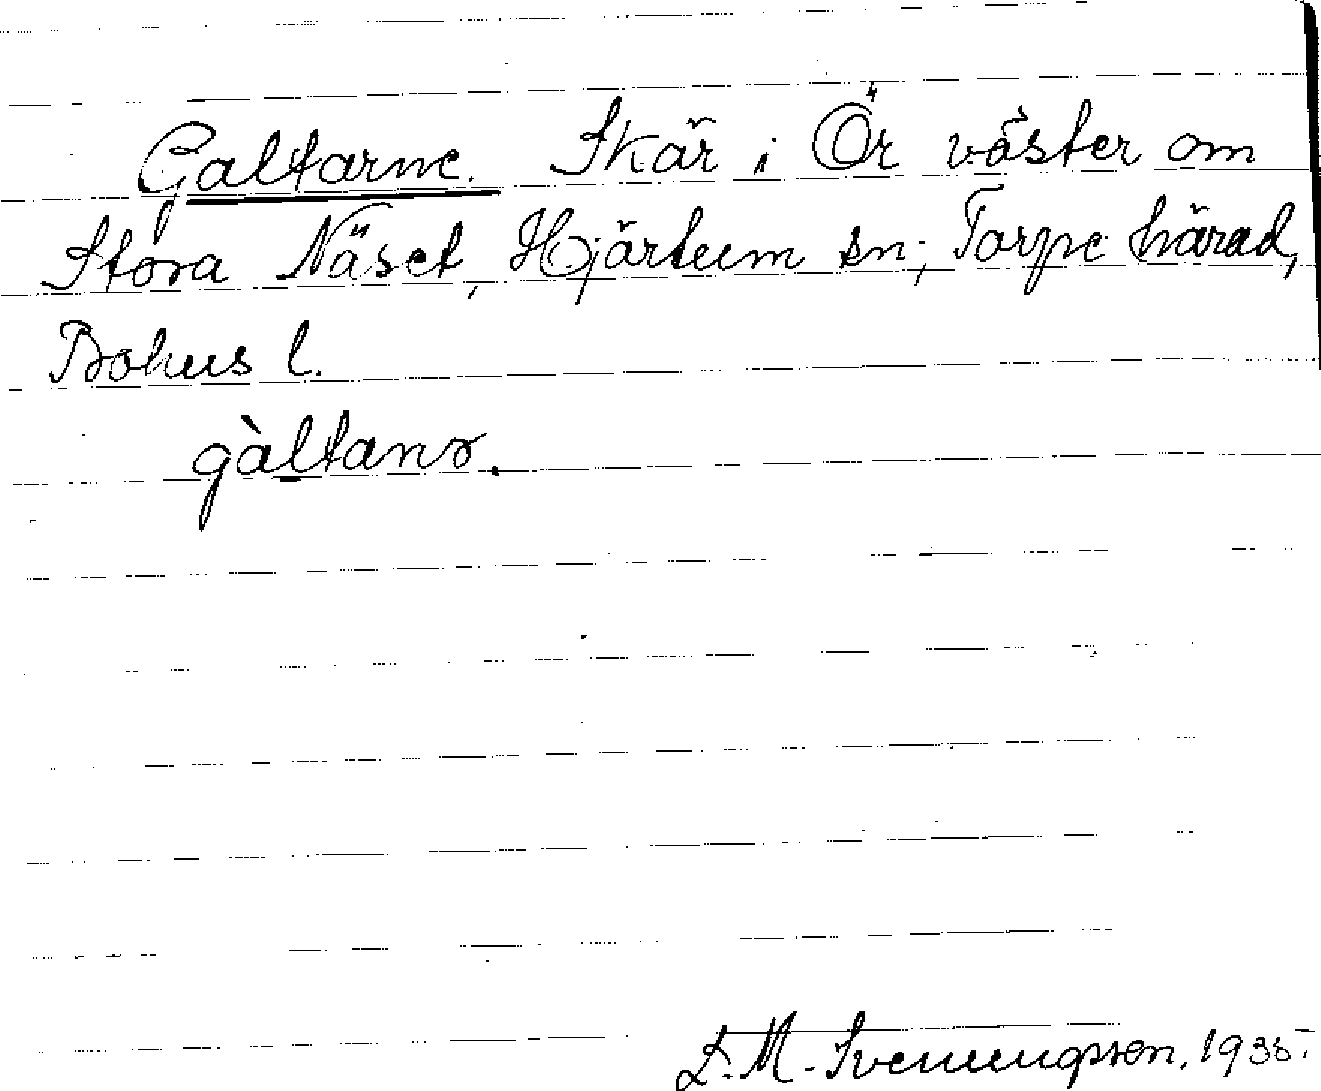 Galtarne. Skär i Ör väster om
Stora Näset, Hjärteum sn; Torpe härad,
Bohus l.
gàltanɷ.
S. M. Svenungsson, 1935.